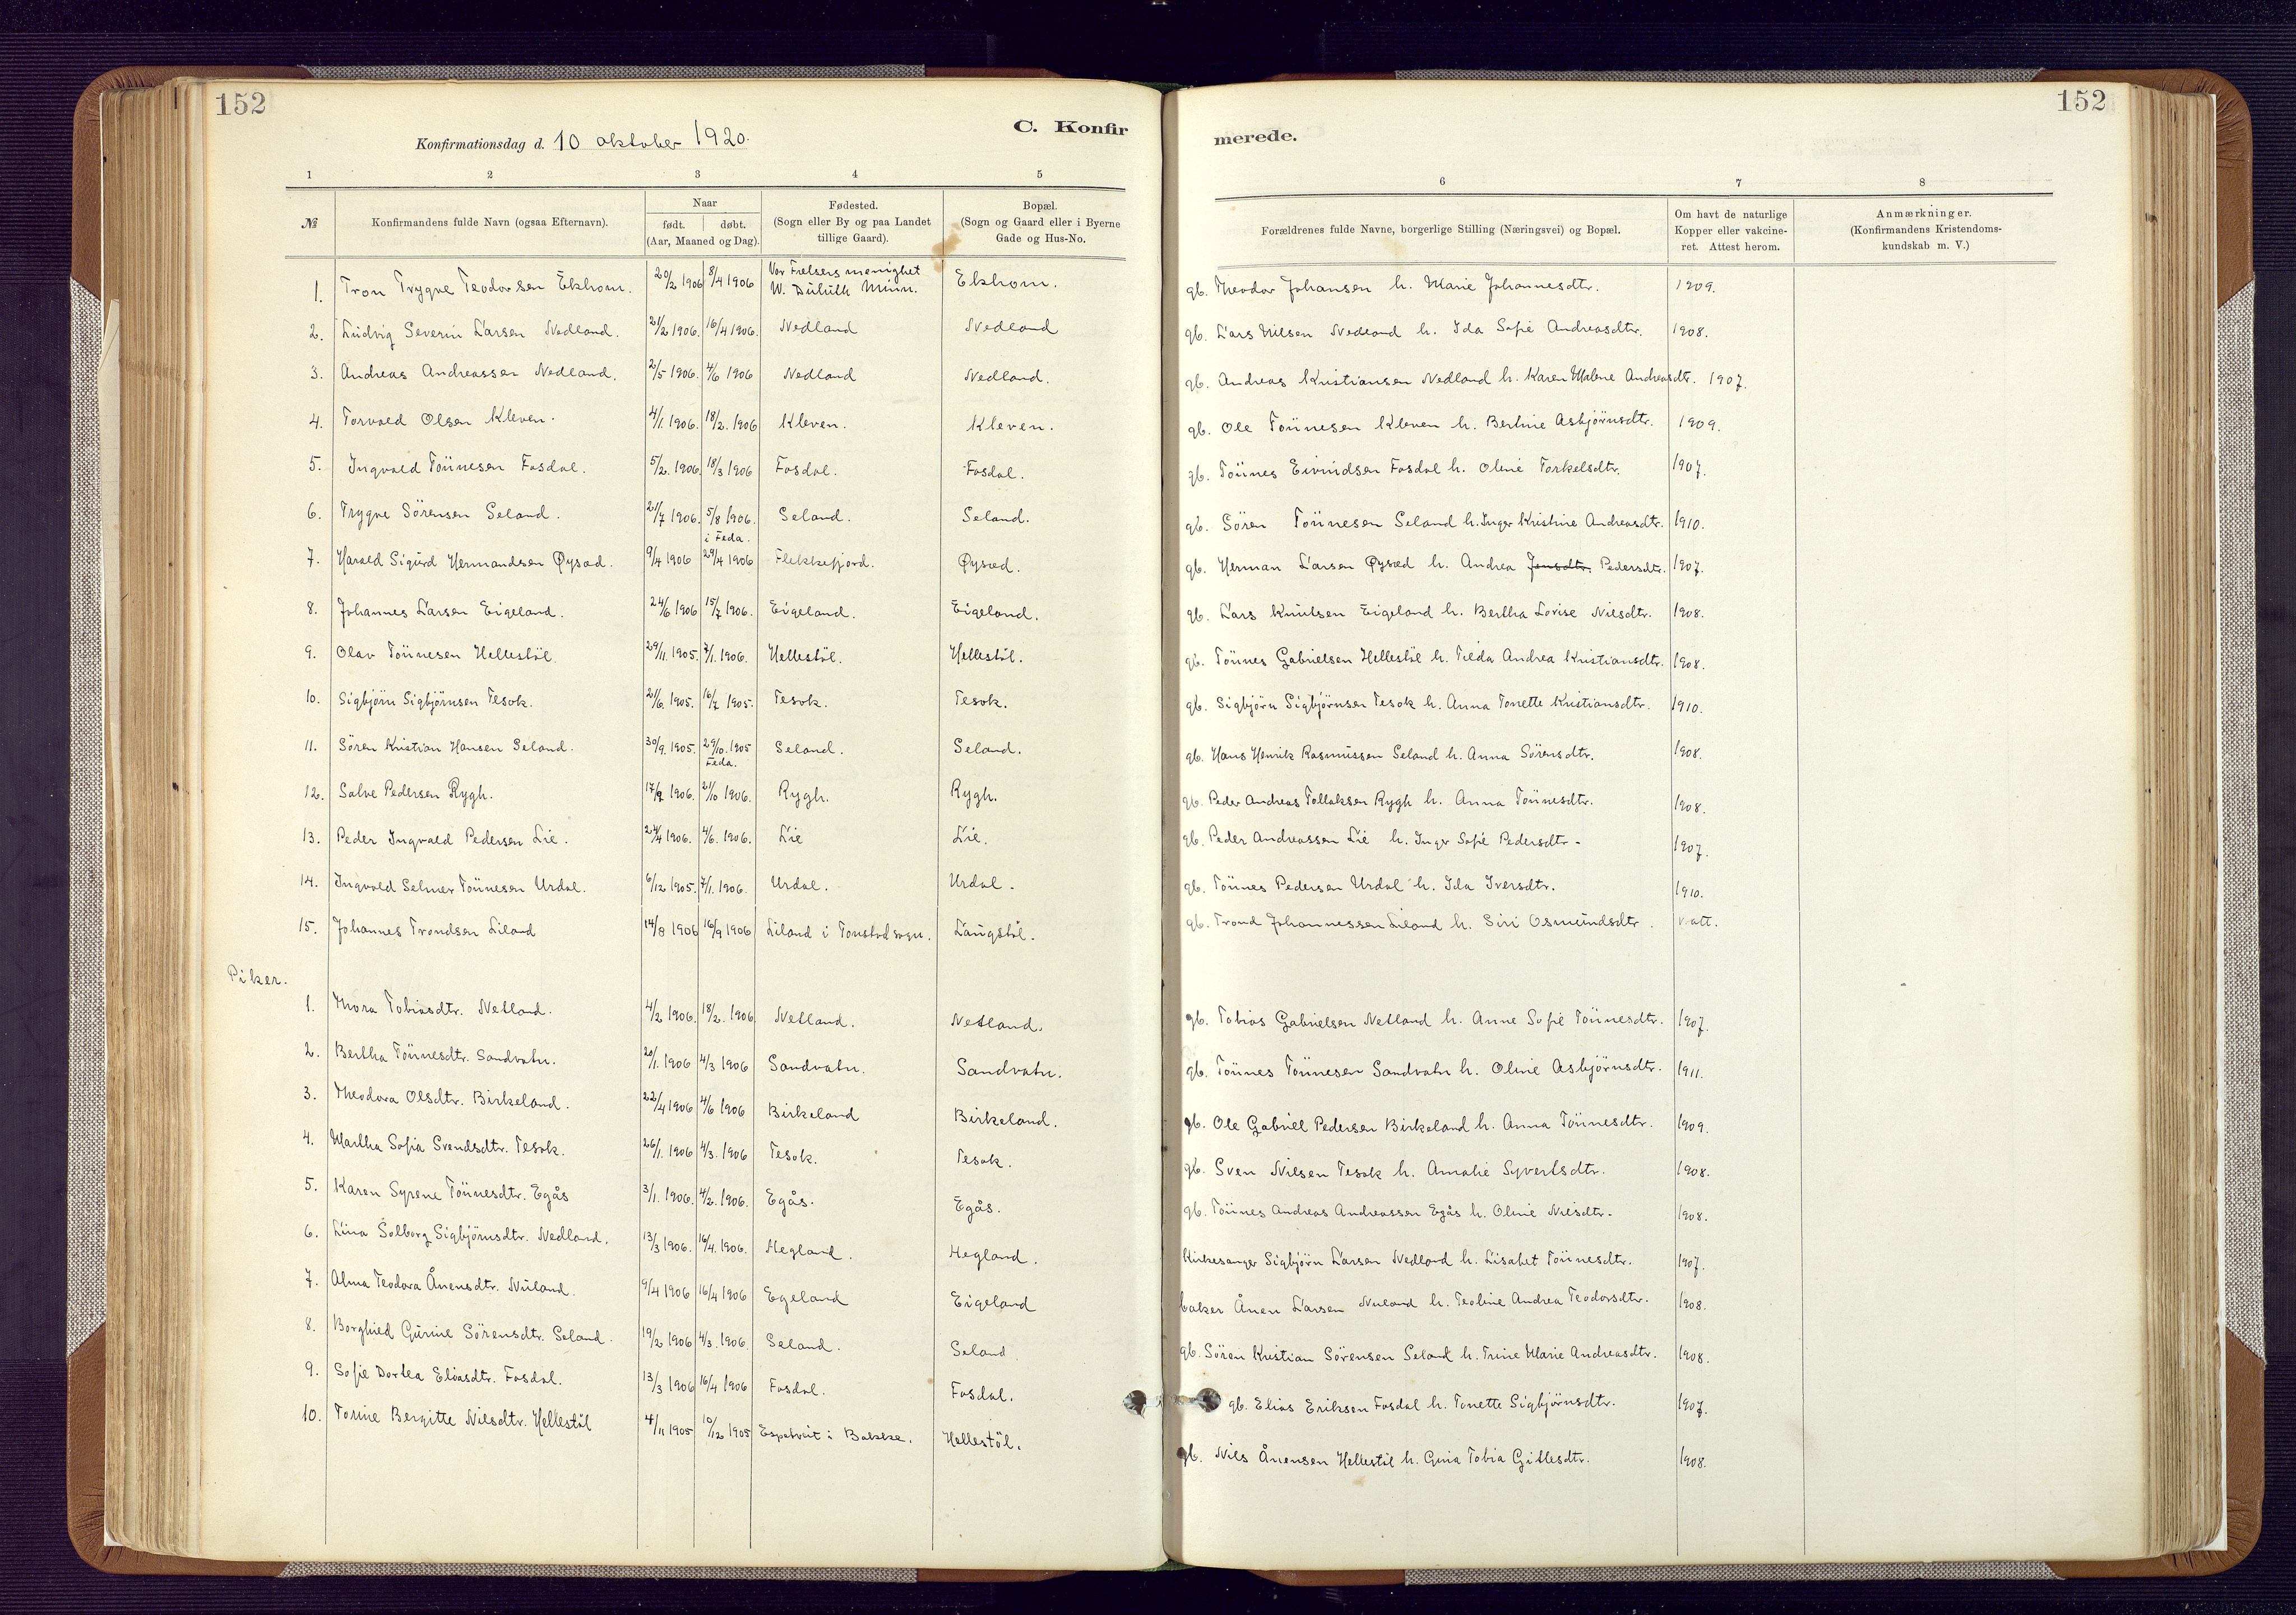 152
152
C. Konfir
merede.
Konfirmationsdag d. 10 oktober 1920.
1 2 3 4 5 6 7 8
№ Konfirmandens fulde Navn (ogsaa Efternavn). Naar født. døbt. (Aar, Maaned og Dag). Fødested. (Sogn eller By og paa Landet tillige Gaard). Bopæl. (Sogn og Gaard eller i Byerne Gade og Hus-No. Forældrenes fulde Navne, borgerlige Stilling (Næringsvei) og Bopæl. Om havt de naturlige Kopper eller vakcineret. Attest herom. Anmærkninger. (Konfirmandens Kristendomskundskab m. V.)
1. Tron Trygve Teodorsen Ekhom. 20/2 1906 8/4 1906 Vor Frelsers menighet W. Duluth Minn. Ekhom. gb. Theodor Johansen h. Marie Johannesdtr. 1909.
2. Ludvig Severin Larsen Nedland. 21/2 1906. 16/4 1906. Nedland Nedland gb. Lars Nilsen Nedland h. Ida Sofie Andreasdtr. 1908.
3. Andreas Andreassen Nedland. 2/5 1906. 4/6 1906 Nedland Nedland. gb. Andreas Kristiansen Nedland h. Karen Malene Andreasdtr. 1907.
4. Torvald Olsen Kleven. 4/1. 1906. 18/2. 1906 Kleven. Kleven. gb. Ole Tönnesen Kleven h. Bertine Asbjörnsdtr. 1909.
5. Ingvald Tönnesen Fosdal. 5/2. 1906. 18/3 1906 Fosdal. Fosdal. gb. Tönnes Eivindsen Fosdal h. Oline Torkelsdtr. 1907.
6. Trygve Sörensen Seland. 21/7 1906. 5/8 1906. i Feda. Seland. Seland. gb. Sören Tönnesen Seland h. Inger Kristine Andreasdtr. 1910.
7. Harald Sigurd Hermandsen Øysæd. 9/4 1906 29/4 1906 Flekkefjord. Øysæd. gb. Herman Larsen Øysæd h. Andrea Jensdtr. Pedersdtr. 1907.
8. Johannes Larsen Eigeland. 24/6 1906 15/7 1906. Eigeland. Eigeland. gb. Lars Knutsen Eigeland h. Bertha Lovise Nilsdtr. 1908.
9. Olav Tönnesen Hellestöl. 29/11. 1905. 7/1. 1906. Hellestöl. Hellestöl. gb. Tönnes Gabrielsen Hellestöl h. Tilda Andrea Kristiansdtr. 1908.
10. Sigbjörn Sigbjörnsen Tesok. 21/6. 1905. 16/7 1905. Tesok. Tesok. gb. Sigbjörn Sigbjörnsen Tesok h. Anna Tonette Kristiansdtr. 1910.
11. Sören Kristian Hansen Seland. 30/9. 1905. 29/10. 1905 Feda. Seland. Seland. gb. Hans Henrik Rasmussen Seland h. Anna Sörensdtr. 1908.
12. Salve Pedersen Rygh. 17/9 1906. 21/10 1906. Rygh. Rygh. gb. Peder Andreas Tollaksen Rygh h. Anna Tönnesdtr. 1908.
13. Peder Ingvald Pedersen Lie. 24/4 1906. 4/6. 1906. Lie Lie. gb. Peder Andreassen Lie h. Inger Sofie Pedersdtr. 1907.
14. Ingvald Selmer Tönnesen Urdal. 6/12 1905. 7/1. 1906. Urdal. Urdal. gb. Tönnes Pedersen Urdal h. Ida Iversdtr. 1910.
15. Johannes Trondsen Liland 14/8 1906 16/9 1906 Liland i Tonstad sogn. Langstöl. gb. Trond Johannessen Liland h. Siri Osmundsdtr. v. att.
Piker.
1. Thora Tobiasdtr. Netland. 4/2 1906. 18/2. 1906 Netland. Netland. gb. Tobias Gabrielsen Netland h. Anne Sofie Tönnesdtr. 1907.
2. Bertha Tönnesdtr. Sandvatn. 20/1. 1906 4/3 1906 Sandvatn. Sandvatn. gb. Tönnes Tönnesen Sandvatn h. Oline Asbjörnsdtr. 1911.
3. Theodora Olsdtr. Birkeland. 22/4 1906 4/6 1906 Birkeland Birkeland. gb. Ole Gabriel Pedersen Birkeland h. Anna Tönnesdtr. 1909.
4. Martha Sofia Svendsdtr. Tesok. 26/1. 1906 4/3. 1906 Tesok. Tesok. gb. Sven Nilsen Tesok h. Amalie Syvertsdtr. 1908.
5. Karen Syrene Tönnesdtr. Egås 3/1. 1906. 4/2. 1906. Egås. Egås. gb. Tönnes Andreas Andreassen Egås h. Oline Nilsdtr. 1908.
6. Lina Solborg Sigbjörnsdtr. Nedland. 13/3 1906. 16/4. 1906. Hegland. Hegland. Kirkesanger Sigbjörn Larsen Nedland h. Lisabet Tönnesdtr. 1907.
7. Alma Teodora Ånensdtr. Nuland. 9/4 1906 16/4 1906 Egeland Eigeland baker Ånen Larsen Nuland h. Teoline Andrea Teodorsdtr. 1908.
8. Borghild Gurine Sörensdtr. Seland. 19/2 1906 4/3. 1906. Seland. Seland. gb. Sören Kristian Sörensen Seland h. Trine Marie Andreasdtr. 1908.
9. Sofie Dortea Eliasdtr. Fosdal. 13/3 1906 16/4 1906 Fosdal. Fosdal. gb. Elias Eriksen Fosdal h. Tonette Sigbjörnsdtr. 1907.
10. Torine Bergitte Nilsdtr. Hellestöl 4/11 1905 10/12 1905 i Bakke. Hellestöl. gb. Nils Ånensen Hellestöl h. Guria Tobia Gitlesdtr. 1908.